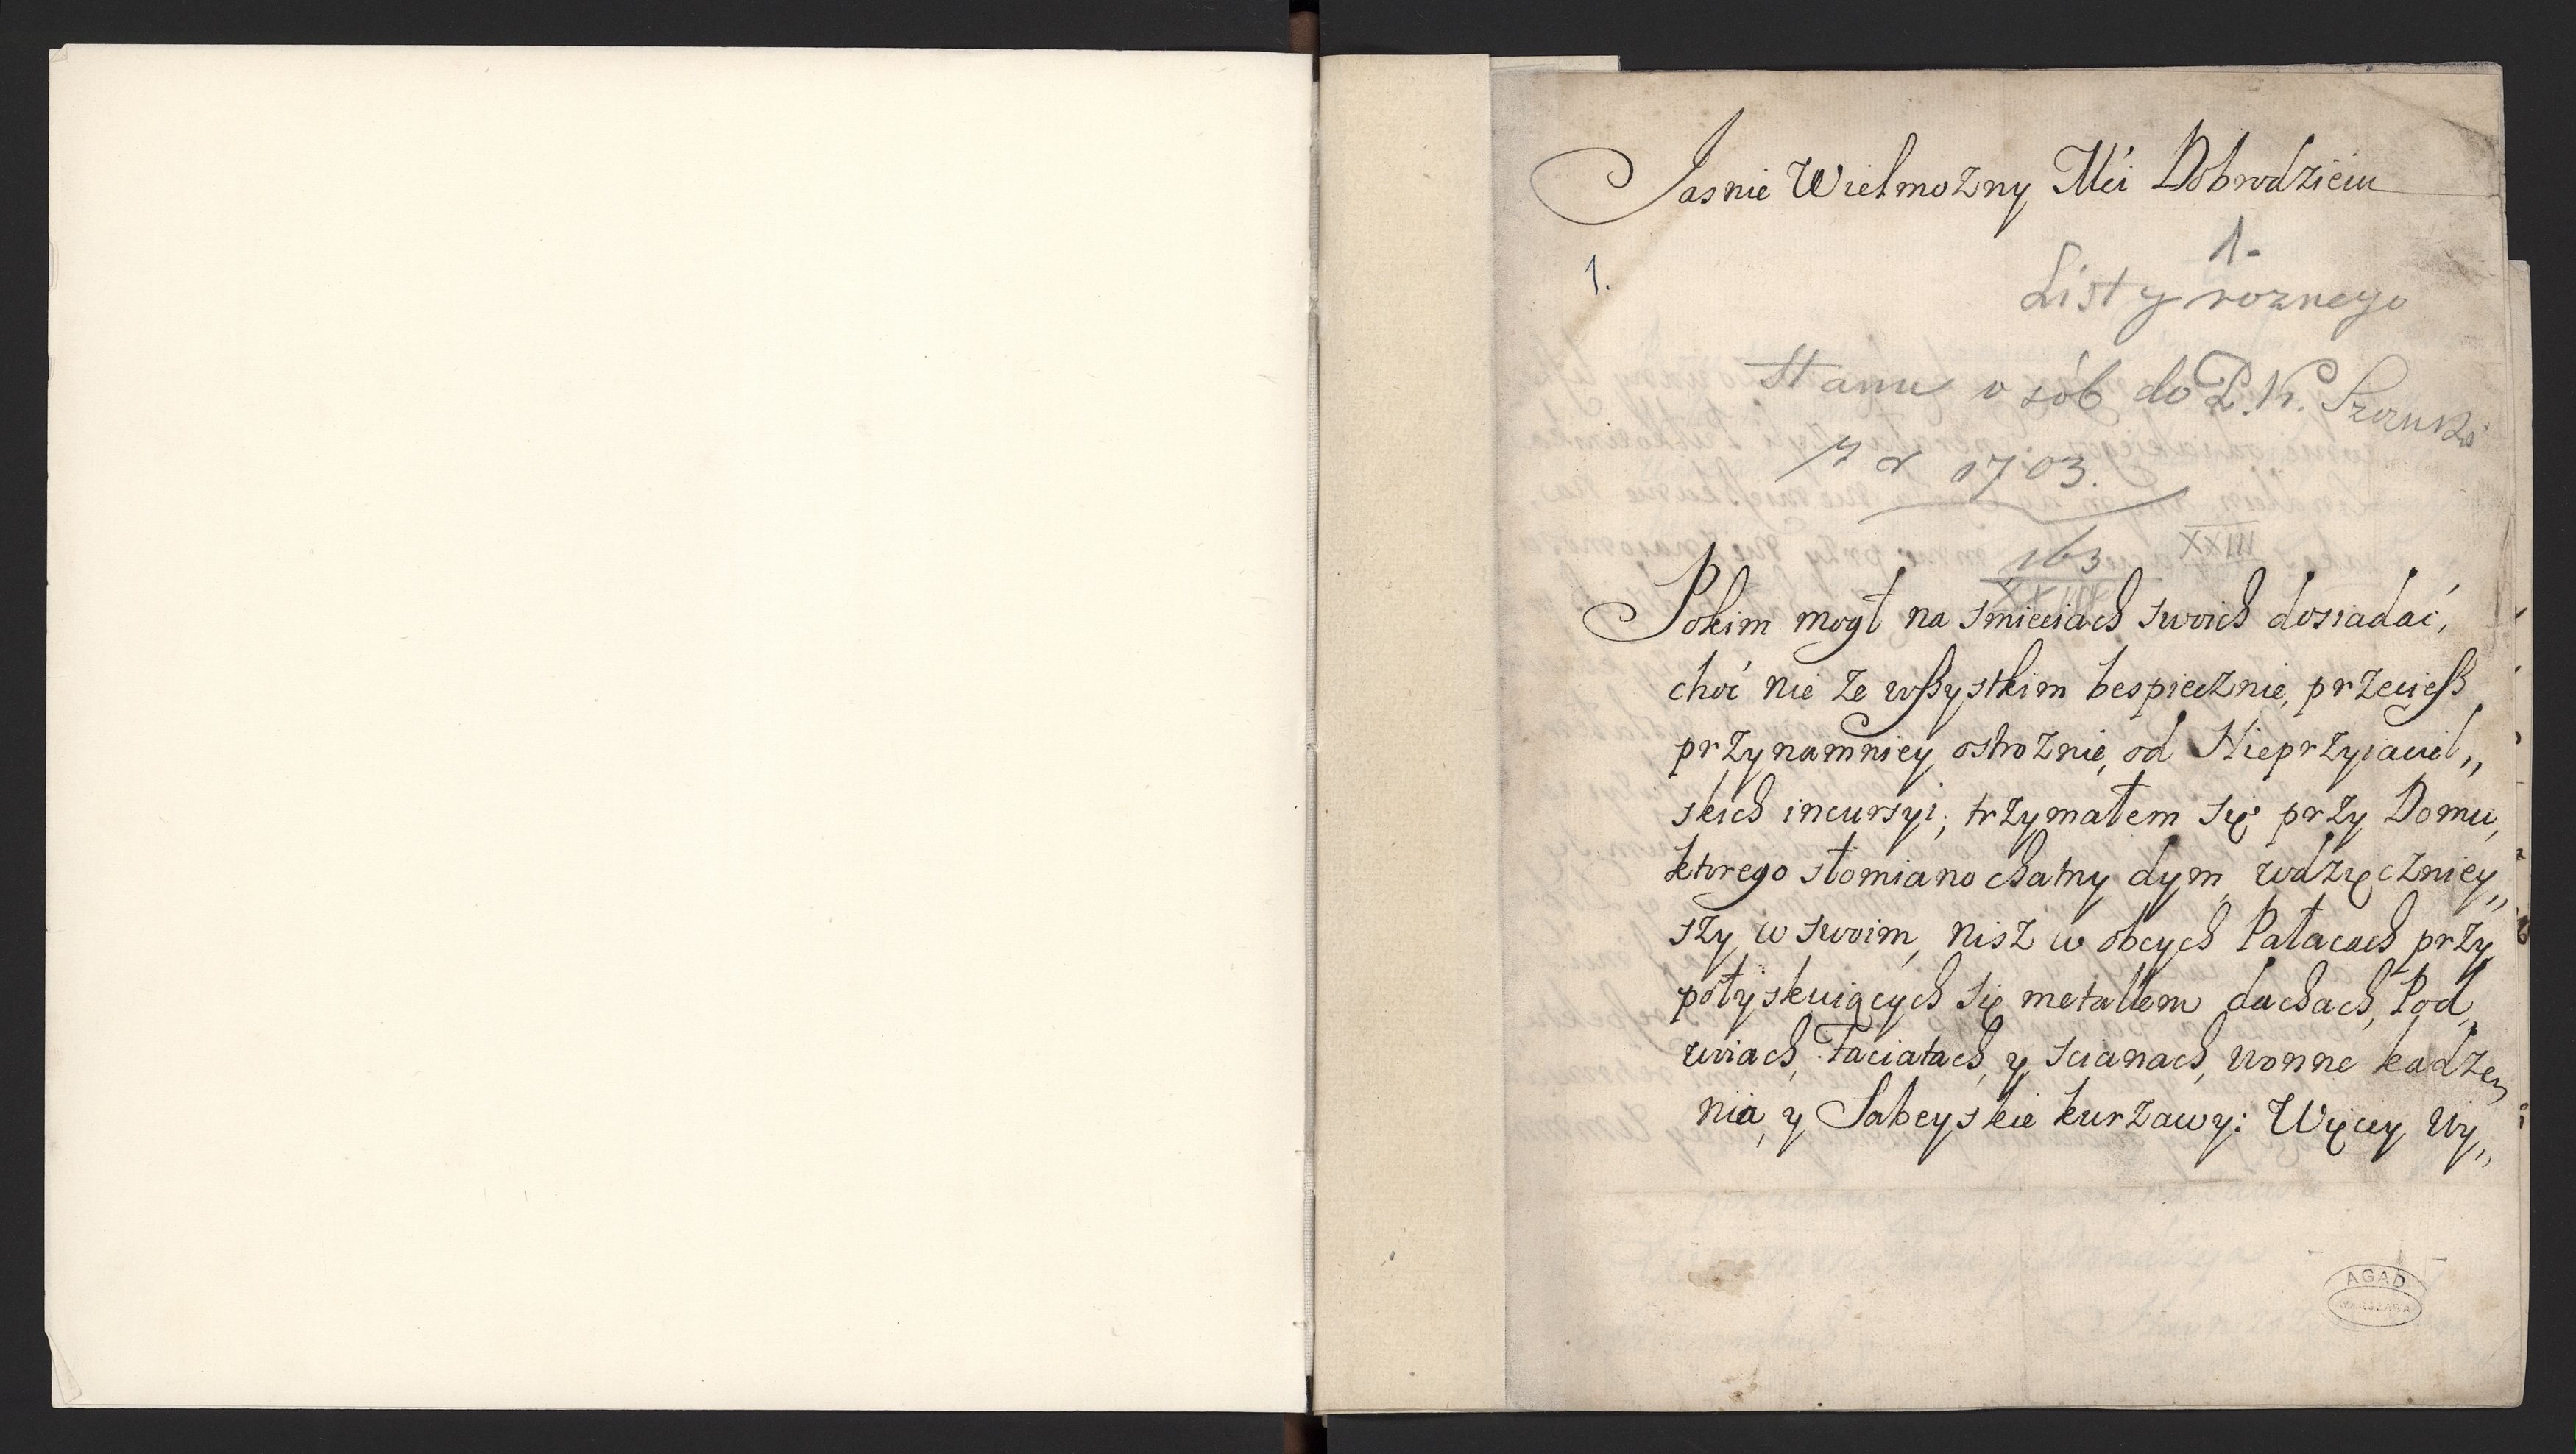 Jasnie Wielmozny Mći Dobrodzieiu
1.
1-
Listy roznego
stanu osób do P. K. Szczuki
z r 1703.
163
XXIII
XXIII
Pokim mogł na smieciach swoich dosiadać,
choć nie ze wszystkim bespiecznie, przecież
przynamniey ostroznie, od Nieprzyiaciel„
skich incursyi; trzymałem się przy Domu,
ktorego słomiano chatny dym, wdzięczniey„
szy w swoim, nisz w obcych Pałacach przy
połyskuiących się metallem dachach, Pod„
woiach, Faciatach, y scianach, wonne kadze„
nia, y Sabeyskie kurzawy: Więcey wy„
AGAD
WARSZAWA